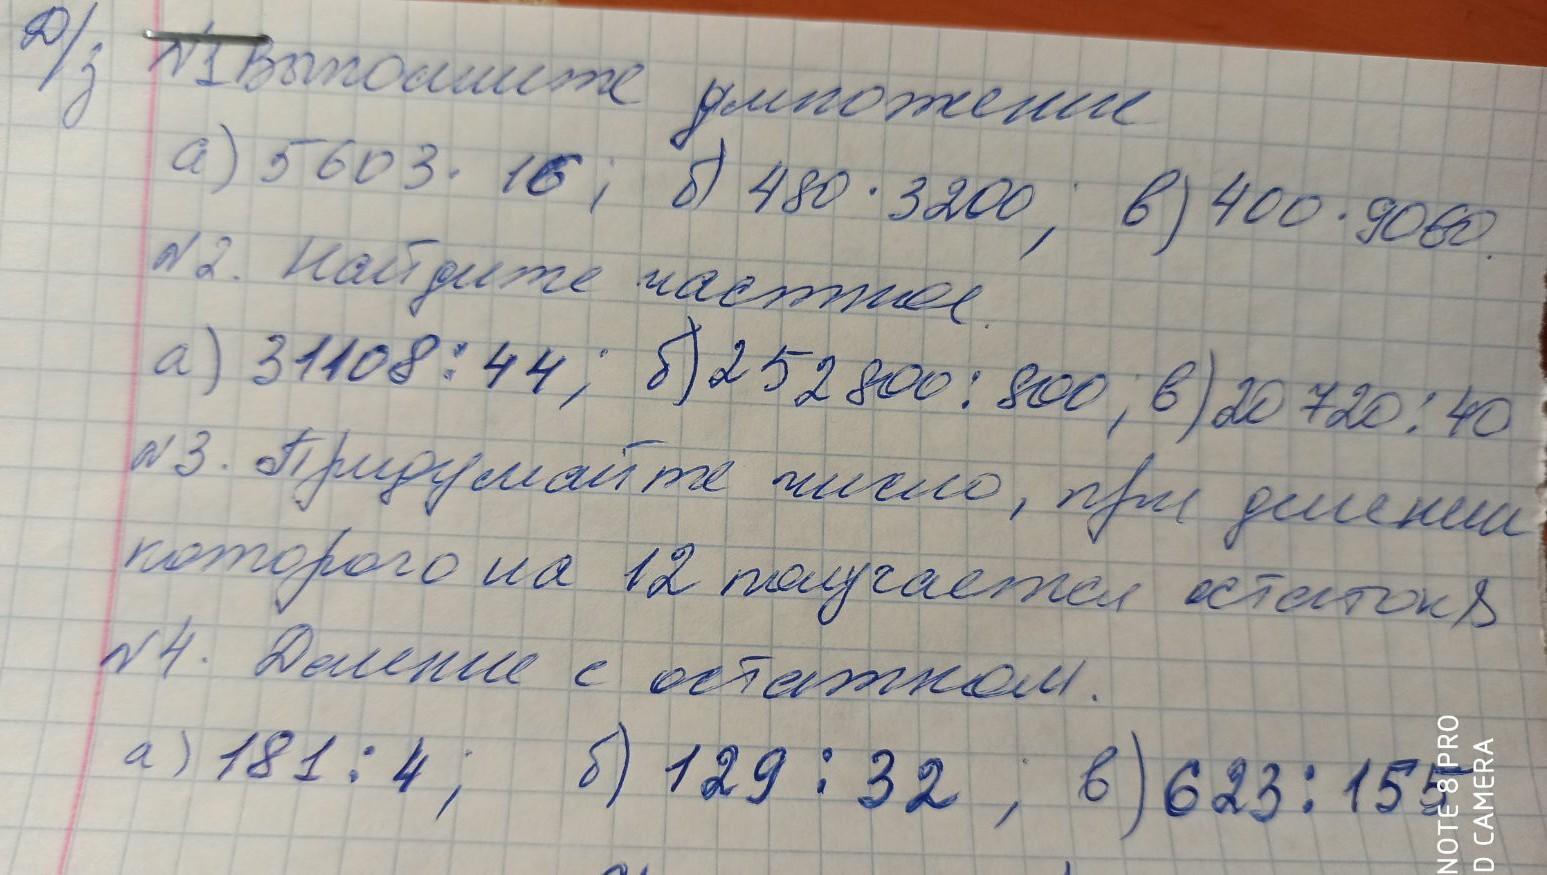 Д/з №1 Выполните умножение
а) 5603 · 16; б) 480 · 3200; в) 400 · 9060.
№2. Найдите частное.
а) 31108 : 44; б) 252 800 : 800; в) 20 720 : 40
№3. Придумайте число, при делении
которого на 12 получается остаток 8
№4. Деление с остатком.
а) 181 : 4; б) 129 : 32; в) 623 : 155
NOTE 8 PRO
D CAMERA